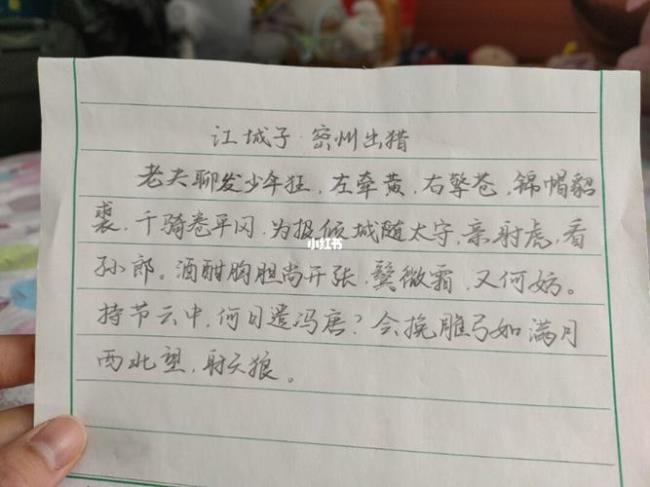 江城子·密州出猎
老夫聊发少年狂，左牵黄，右擎苍，锦帽貂
裘，千骑卷平冈，为报倾城随太守，亲射虎，看
孙郎。酒酣胸胆尚开张，鬓微霜，又何妨。
持节云中，何日遣冯唐？会挽雕弓如满月
西北望，射天狼。
小红书